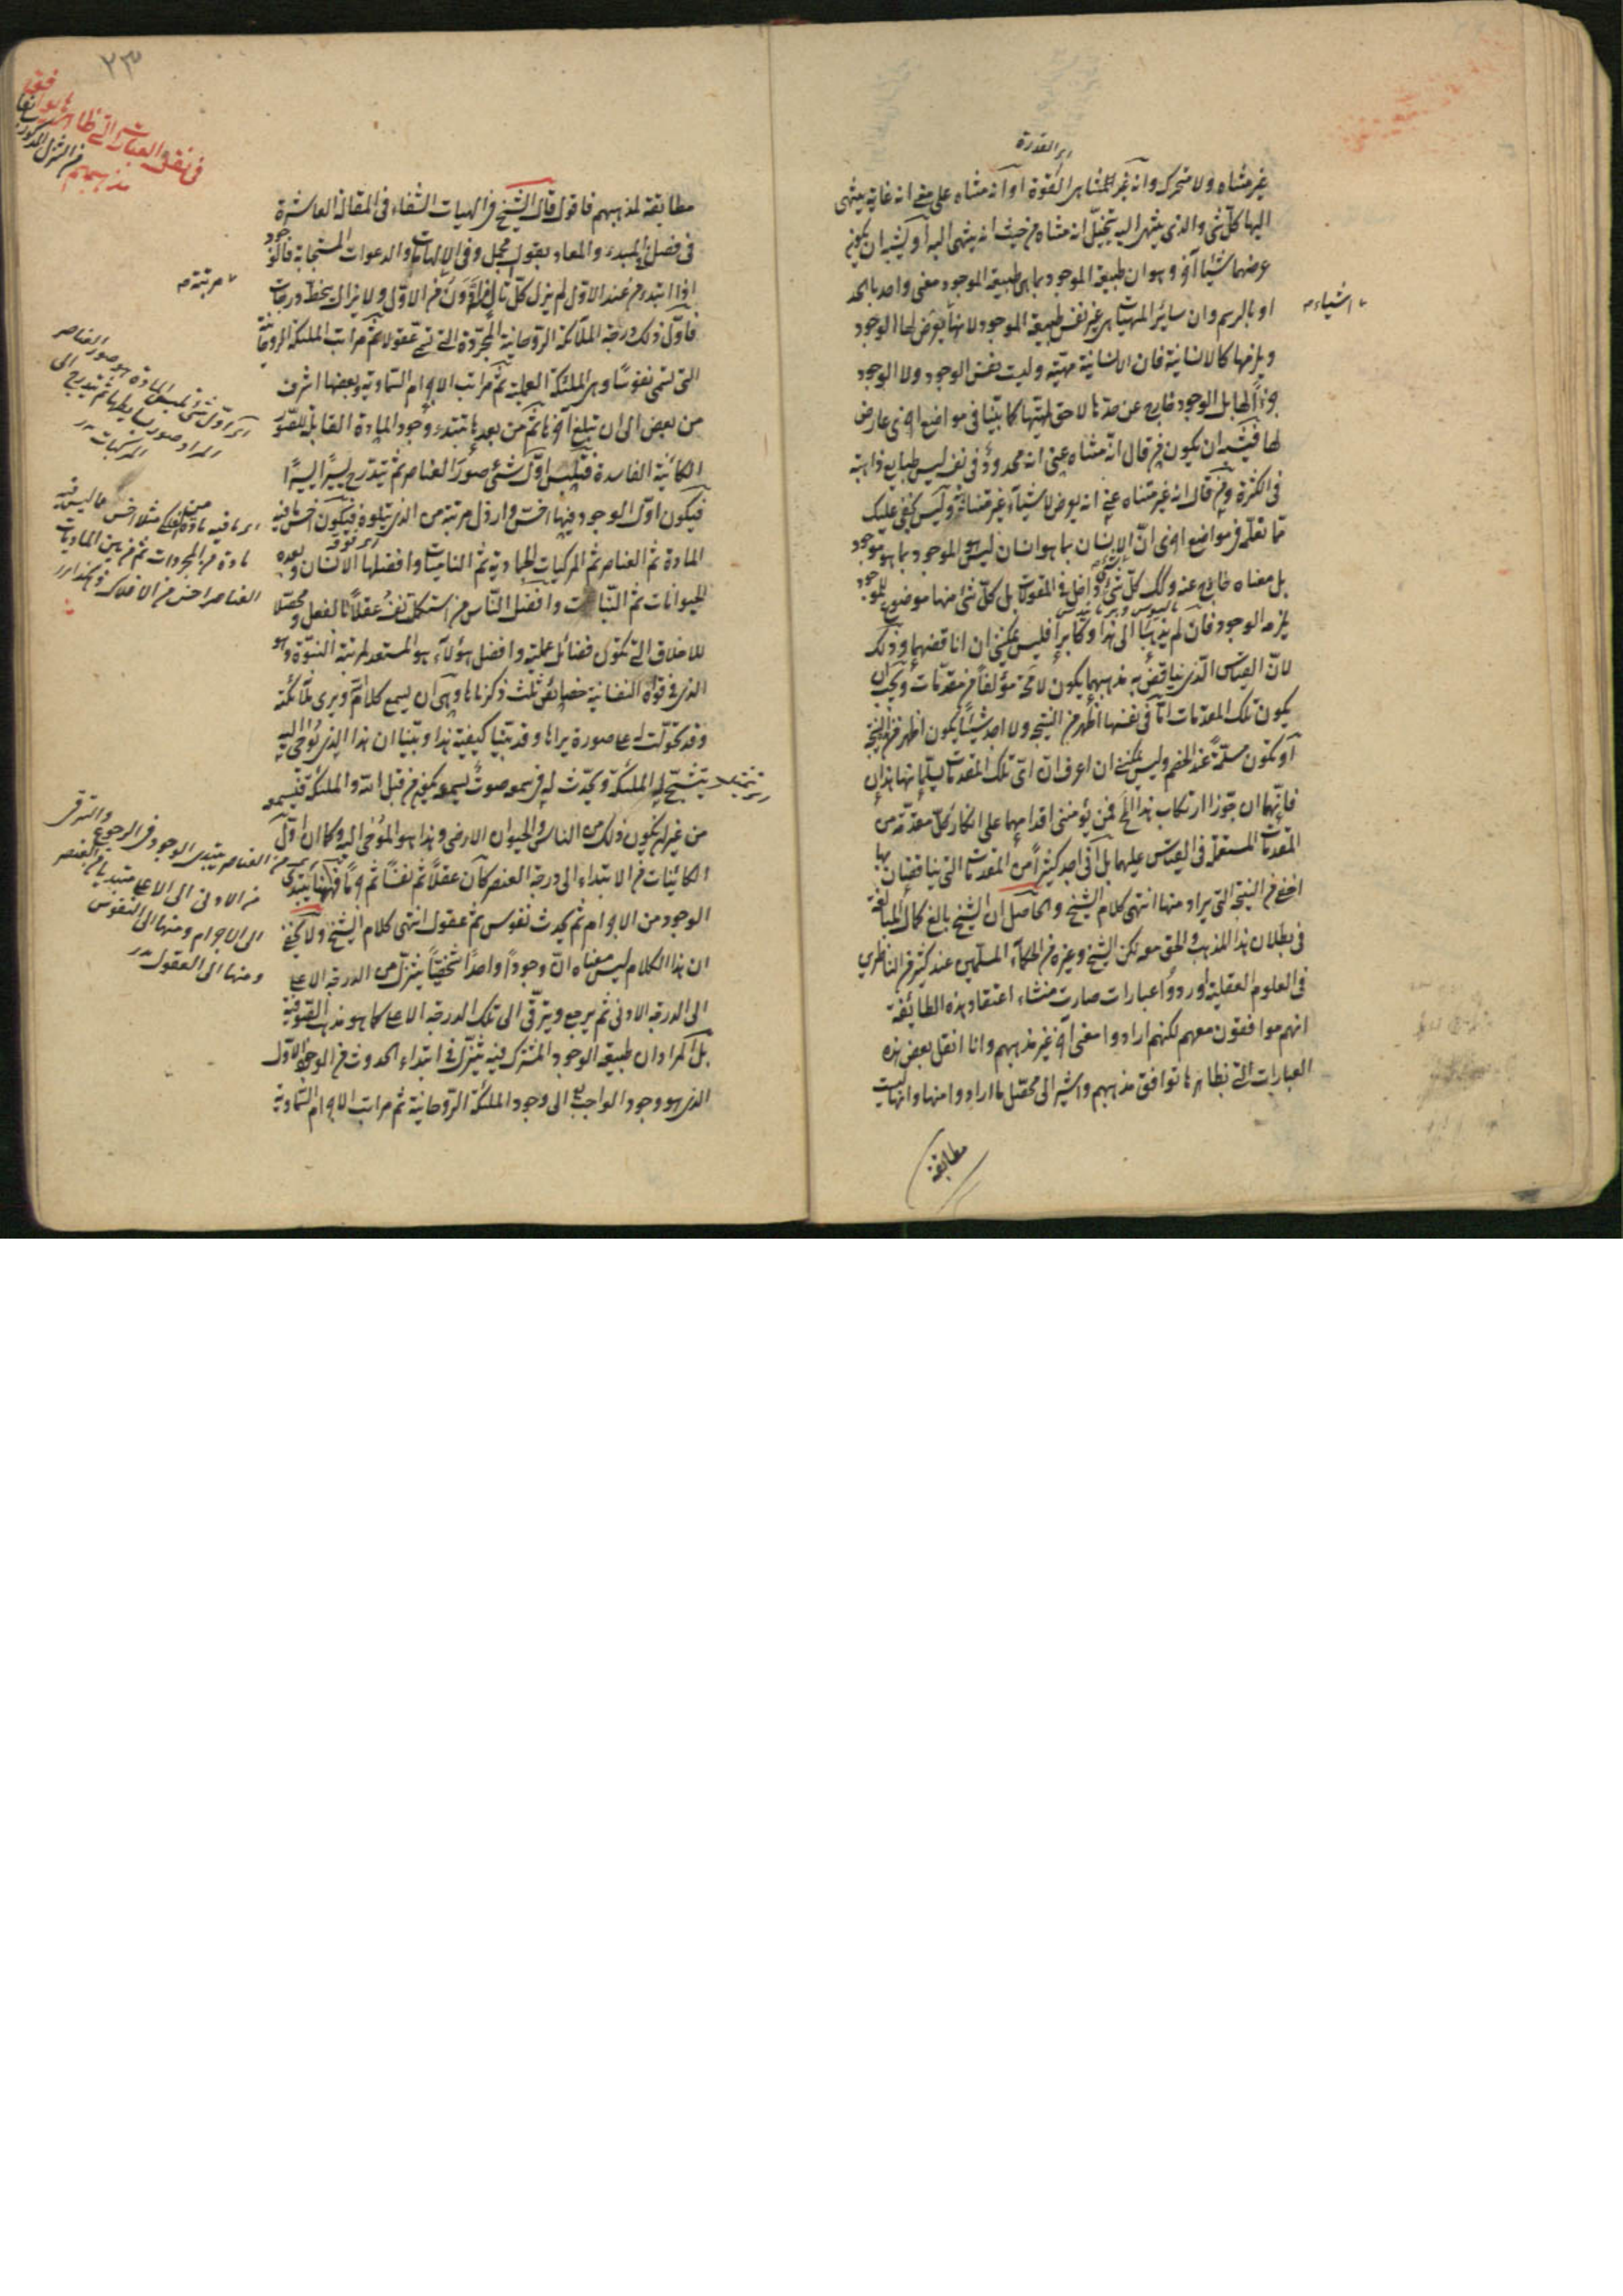 اى القدرة
غير متناه ولا متحرك وانه غير المتناهى القوة او انه متناه على معنى انه غاية ينتهى
اليها كل شئ والذى ينتهى اليه يتخيّل انه متناه من حيث انه ينتهى اليه او يشبه ان يكون
غرضهما شيئا آخر وهو ان طبيعة الموجود بما هى طبيعة الموجود معنى واحد بالحد
او بالرسم وان سائر المهيات هى غير نفس طبيعة الموجود لانها يعرض لها الوجود
اشياء
ويلزمها كالانسانية فان الانسانية مهيّة وليست نفس الوجود ولا الوجود
جزءاً لها بل الوجود خارج عن حدها لاحق لمهيتها كما بيّنا فى مواضع اخرى عارض
لها فيشبه ان يكون من قال انه متناه عنى انه محدود فى نفسه ليس طبايع ذاهبة
فى الكثرة ومن قال انه غير متناه عنى انه يعرض لاشياء غير متناهية وليس يخفى عليك
مما تعلّمه فى مواضع اخرى انّ الانسان بما هو انسان ليس هو الموجود بما هو موجود
بل معناه خارج عنه وكذلك كلّ شئ داخل فى المقولات بل كلّ شئ منها موضوع للموجود
يلزمه الوجود فان لم يذهبا الى هذا وكابرا فليس يمكننى ان اناقضهما وذلك
لانّ القياس الّذى يناقض به مذهبهما يكون لا محة مؤلفاً من مقدّمات ويجب ان
يكون تلك المقدّمات امّا فى نفسها اظهر من النتيجة ولا اجد شيئاً يكون اظهر من هذه النتيجة
او يكون مسلّمة عند الخصم وليس يمكننى ان اعرف انّ اىّ تلك المقدمات يسلّمانها هذان
فانّهما ان جوّزا ارتكاب هذا المح فمن يؤمننى اقدامهما على انكار كلّ مقدّمة من
المقدمات المستعملة فى القياس عليهما بل انّى اجد كثيراً من المقدمات التى يناقضان بها
اخفى من النتيجة التى يراد منها انتهى كلام الشيخ والحاصل ان الشيخ بالغ كمال المبالغة
فى بطلان هذا المذهب والحق معه لكن الشيخ وغيره من الحكماء المسلّمين عند كثير من الناظرين
فى العلوم العقلية اوردوا عبارات صارت منشاء اعتقاد هذه الطائفة
انهم موافقون معهم لكنهم ارادوا معنى آخر غير مذهبهم وانا انقل بعض هذه
العبارات التى بظاهرها توافق مذهبهم واشير الى محصّل ما ارادوا منها وانها ليست
مطابقة
٢٣
فى نقل العبارات التى ظاهرها يوافق
مذهبهم
مطابقة لمذهبهم فاقول قال الشيخ فى الهيات الشفاء فى المقالة العاشرة
فى فصل فى المبدء والمعاد بقول مجمل وفى الالهامات والدعوات المستجابة فالوجود
اذا ابتدء من عند الاول لم يزل كلّ تال منه ادون مرتبة من الاوّل ولا يزال ينحطّ درجات
مرتبة
فاوّل ذلك درجة الملائكة الروحانية المجرّدة التى تسمى عقولا ثم مراتب الملئكة الروحانية
التى تسمى نفوسًا وهى الملئكة العملية ثمّ مراتب الاجرام السماوية وبعضها اشرف
من بعض الى ان تبلغ آخرها ثمّ من بعدها يبتدء وجود المادة القابلة للصّور
الكائنة الفاسدة فيلبس اوّل شئ صور العناصر ثمّ يتدرّج يسيرًا يسيرًا
فيكون اوّل الوجود فيها اخسّ وارذل مرتبة من الذى يتلوه فيكون اخسّ ما فيه
المادة ثمّ العناصر ثمّ المركبات الجمادية ثمّ الناميات وافضلها الانسان وبعده
الحيوانات ثمّ النّبات وافضل النّاس من استكملت نفسه عقلاً بالفعل ومحصّلا
للاخلاق التى تكون فضائل عملية وافضل هؤلاء هو المستعد لمرتبة النبوّة وهو
الذى فى قواه النفسانية خصايص ثلث ذكرناها وهى ان يسمع كلام الله ويرى ملائكته
وقد تحوّلت له على صورة يراها وقد بيّنا كيفية هذا وبيّنا ان هذا الذى يوحى اليه
يتشبّح له الملئكة ويحدث له فى سمعه صوت يسمعه يكون من قبل الله والملئكة فيسمعه
من غير ان يكون ذلك من الناس والحيوان الارضى وهذا هو الموحى اليه وكما ان اوّل
الكائنات من الابتداء الى درجة العنصر كان عقلاً ثم نفسًا ثم جرمًا فههنا يبتدئ
الوجود من الاجرام ثم يحدث نفوس ثم عقول انتهى كلام الشيخ ولا يخفى
ان هذا الكلام ليس معناه انّ وجوداً واحداً شخصيّاً يتنزّل من الدرجة الاعلى
الى الدرجة الادنى ثم يرجع ويترقّى الى تلك الدرجة الاعلى كما هو مذهب الصّوفية
بل المراد ان طبيعة الوجود المشترك فيه يتنزّل فى ابتداء الحدوث من الوجود الاوّل
الذى هو وجود الواجب تع الى وجود الملئكة الرّوحانية ثم مراتب الاجرام السّماوية
اى اوّل شئ تلبس المادة هو صور العناصر
المراد صور بسايطها ثم يتدرج الى
المركبات
مادة من المجردات ثم من بين الماديات
العناصر اخس من الافلاك وهكذا
من العناصر يبتدى الوجود فى الرجوع والترقى
من الادنى الى الاعلى مبتديا من العنصر
الى الاجرام ومنها الى النفوس
ومنها الى العقول